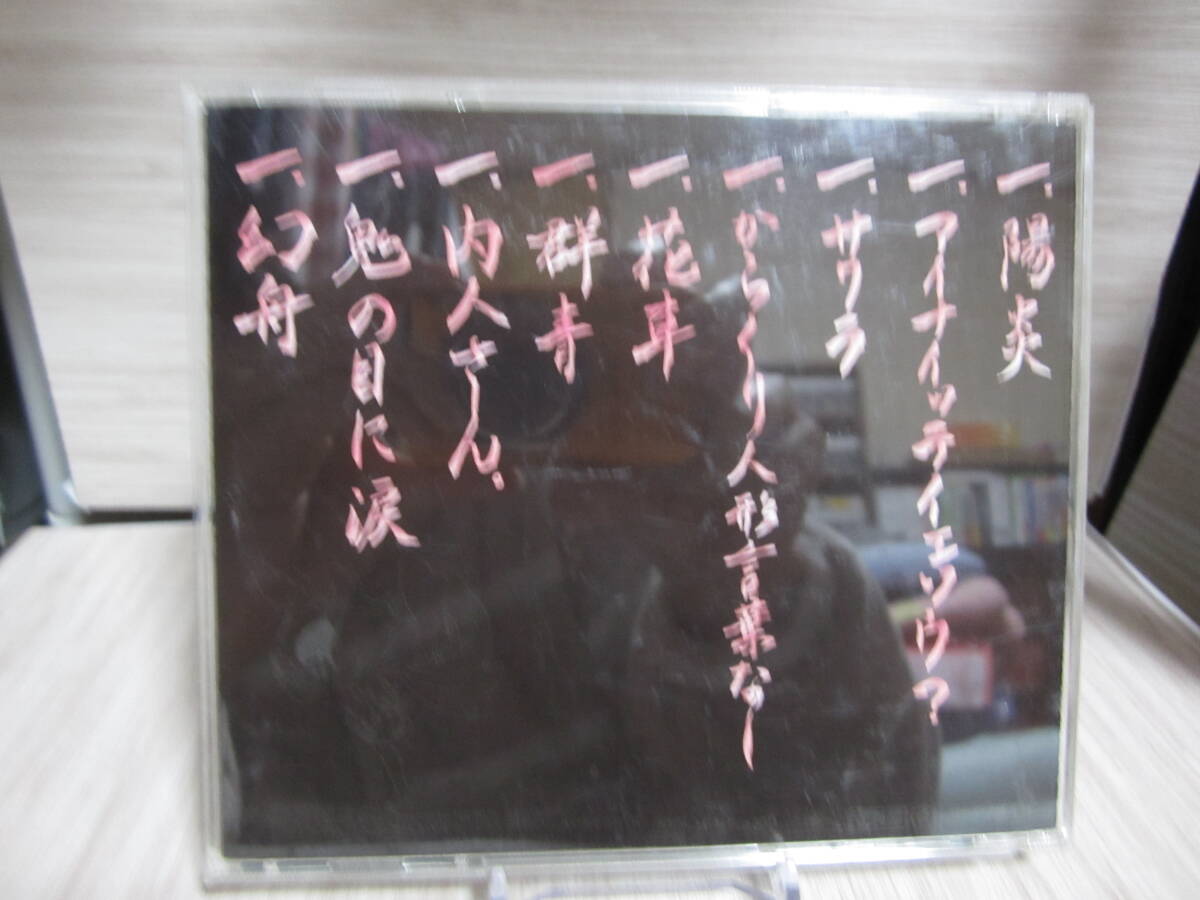 一、陽炎
一、アイナイッテイエソウ？
一、サクラ
一、からくり人形言葉なし
一、花車
一、群青
一、内人さん、
一、鬼の目に涙
一、幻舟